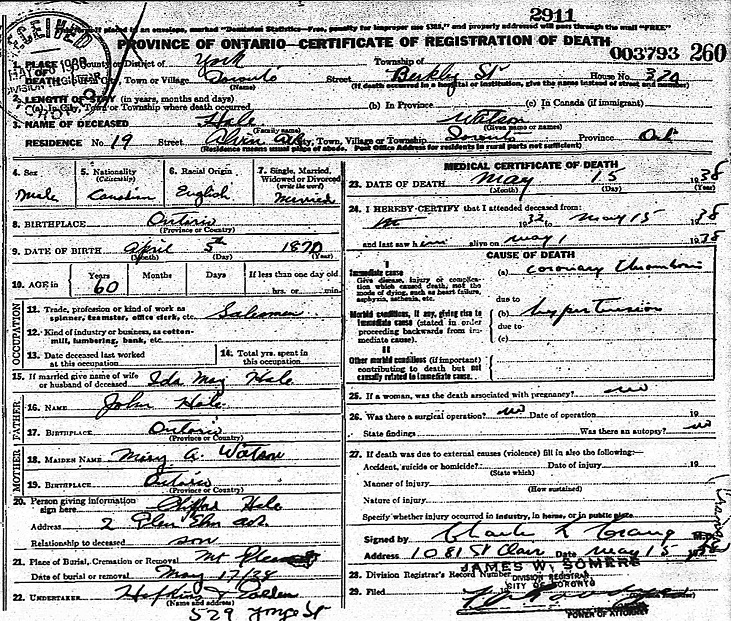 2911
placed in an envelope, marked "Dominion Statistics—Free, penalty for improper use $300," and properly addressed will pass through the mail "FREE"
PROVINCE OF ONTARIO—CERTIFICATE OF REGISTRATION OF DEATH
003793 260
RECEIVED
1. PLACE OF DEATH County or District of York Township of
City, Town or Village Toronto Street Berkley St House No. 320
(Name) (If death occurred in a hospital or institution, give the name instead of street and number)
2. LENGTH OF STAY (in years, months and days)
(a) In City, Town or Township where death occurred (b) In Province (c) In Canada (if immigrant)
3. NAME OF DECEASED Hale Watson
(Family name) (Given name or names)
RESIDENCE No. 19 Street Alvin Ave City, Town, Village or Township Toronto Province Ont
(Residence means usual place of abode. Post Office Address for residents in rural parts not sufficient)
4. Sex 5. Nationality (Citizenship) 6. Racial Origin 7. Single, Married, Widowed or Divorced (write the word)
Male Canadian English Married
8. BIRTHPLACE Ontario
(Province or Country)
9. DATE OF BIRTH April 5th 1870
(Month) (Day) (Year)
10. AGE in Years Months Days If less than one day old
60 hrs. or min.
OCCUPATION
11. Trade, profession or kind of work as spinner, teamster, office clerk, etc. Salesman
12. Kind of industry or business, as cotton-mill, lumbering, bank, etc.
13. Date deceased last worked at this occupation 14. Total yrs. spent in this occupation
15. If married give name of wife or husband of deceased Ida May Hale
FATHER
16. NAME John Hale
17. BIRTHPLACE Ontario
(Province or Country)
MOTHER
18. MAIDEN NAME Mary A. Watson
19. BIRTHPLACE Ontario
(Province or Country)
20. Person giving information sign here Clifford Hale
Address 2 Glen Elm Ave.
Relationship to deceased son
21. Place of Burial, Cremation or Removal Mt Pleasant
Date of burial or removal May 17/38
22. UNDERTAKER Hopkins &
(Name and address)
529 Yonge St
MEDICAL CERTIFICATE OF DEATH
23. DATE OF DEATH May 15 1938
(Month) (Day) (Year)
24. I HEREBY CERTIFY that I attended deceased from:
1932 to May 15 1938
and last saw him alive on May 1 1938
CAUSE OF DEATH
I
Immediate cause (a) coronary thrombosis
Give disease, injury or complication which caused death, not the mode of dying, such as heart failure, asphyxia, asthenia, etc.
due to
Morbid conditions, if any, giving rise to immediate cause (stated in order proceeding backwards from immediate cause) (b) hypertension
due to
(c)
II
Other morbid conditions (if important) contributing to death but not causally related to immediate cause.
25. If a woman, was the death associated with pregnancy? no
26. Was there a surgical operation? no Date of operation 19
State findings Was there an autopsy? no
27. If death was due to external causes (violence) fill in also the following:—
Accident, suicide or homicide? Date of injury 19
(State which)
Manner of injury
(How sustained)
Nature of injury
Specify whether injury occurred in industry, in home, or in public place
Signed by M.D.
Address 1081 St Clair Date May 15 1938
JAMES W. SOMERS
28. Division Registrar's Record Number DIVISION REGISTRAR
CITY OF TORONTO
29. Filed
POWER OF ATTORNEY